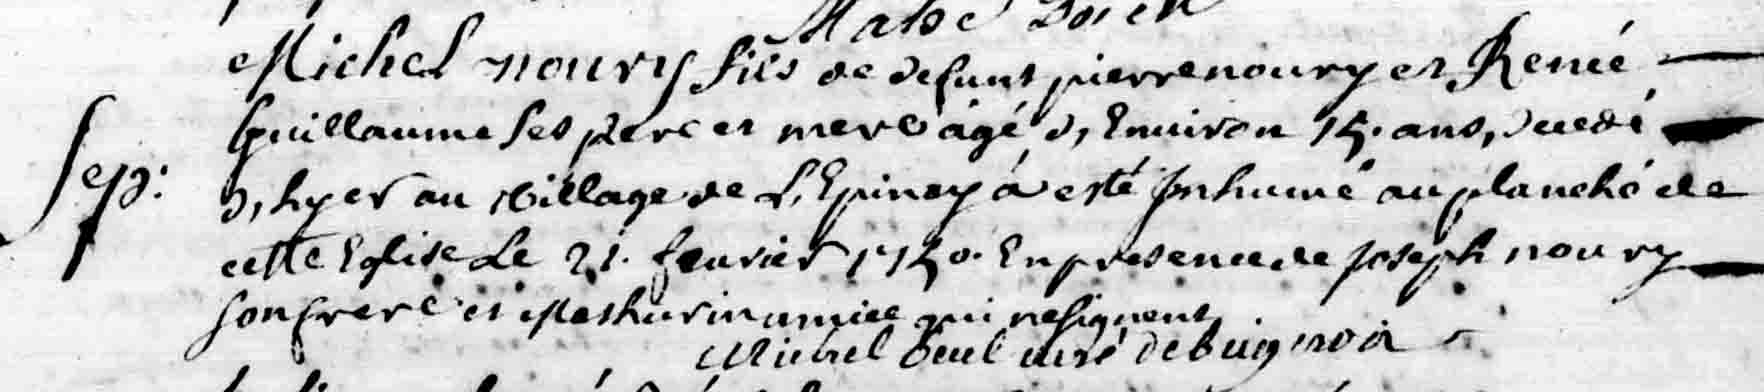 Michel noury fils de defunt pierre noury et Renée
Sep:
Guillaume ses pere et mere agé d, Environ 15. ans, decedé
d, hyer au village de L, Epinay a esté Inhumé au planché de
cette Eglise Le 21. feuvrier 1750. En presence de joseph noury
son frere et Mathurin qui ne signent
Michel curé de buignon